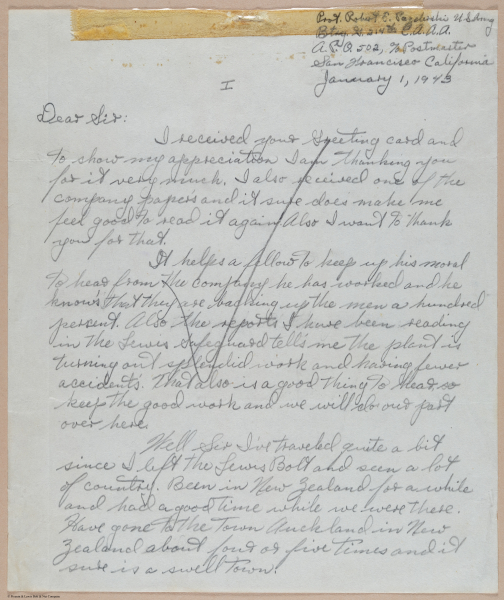 Pvt. Robert E. U.S. Army
Btry. 214th C.A.A.A.
A.P.O. 502, % Postmaster
San Francisco California
January 1, 1943
I
Dear Sir:
I received your Greeting card and
to show my appreciation I am thanking you
for it very much. I also received one of the
company papers and it sure does make me
feel good to read it again. Also I want to thank
you for that.
It helps a fellow to keep up his moral
to hear from the company he has worked and he
knows that they are backing up the men a hundred
percent. Also the reports I have been reading
in the Lewis Safeguard tells me the plant is
turning out splendid work and having fewer
accidents. That also is a good thing to hear so
keep the good work and we will do our part
over here.
Well Sir I've traveled quite a bit
since I left the Lewis Bolt and seen a lot
of country. Been in New Zealand for a while
and had a good time while we were there.
Have gone to the Town Auckland in New
Zealand about four or five times and it
sure is a swell Town.